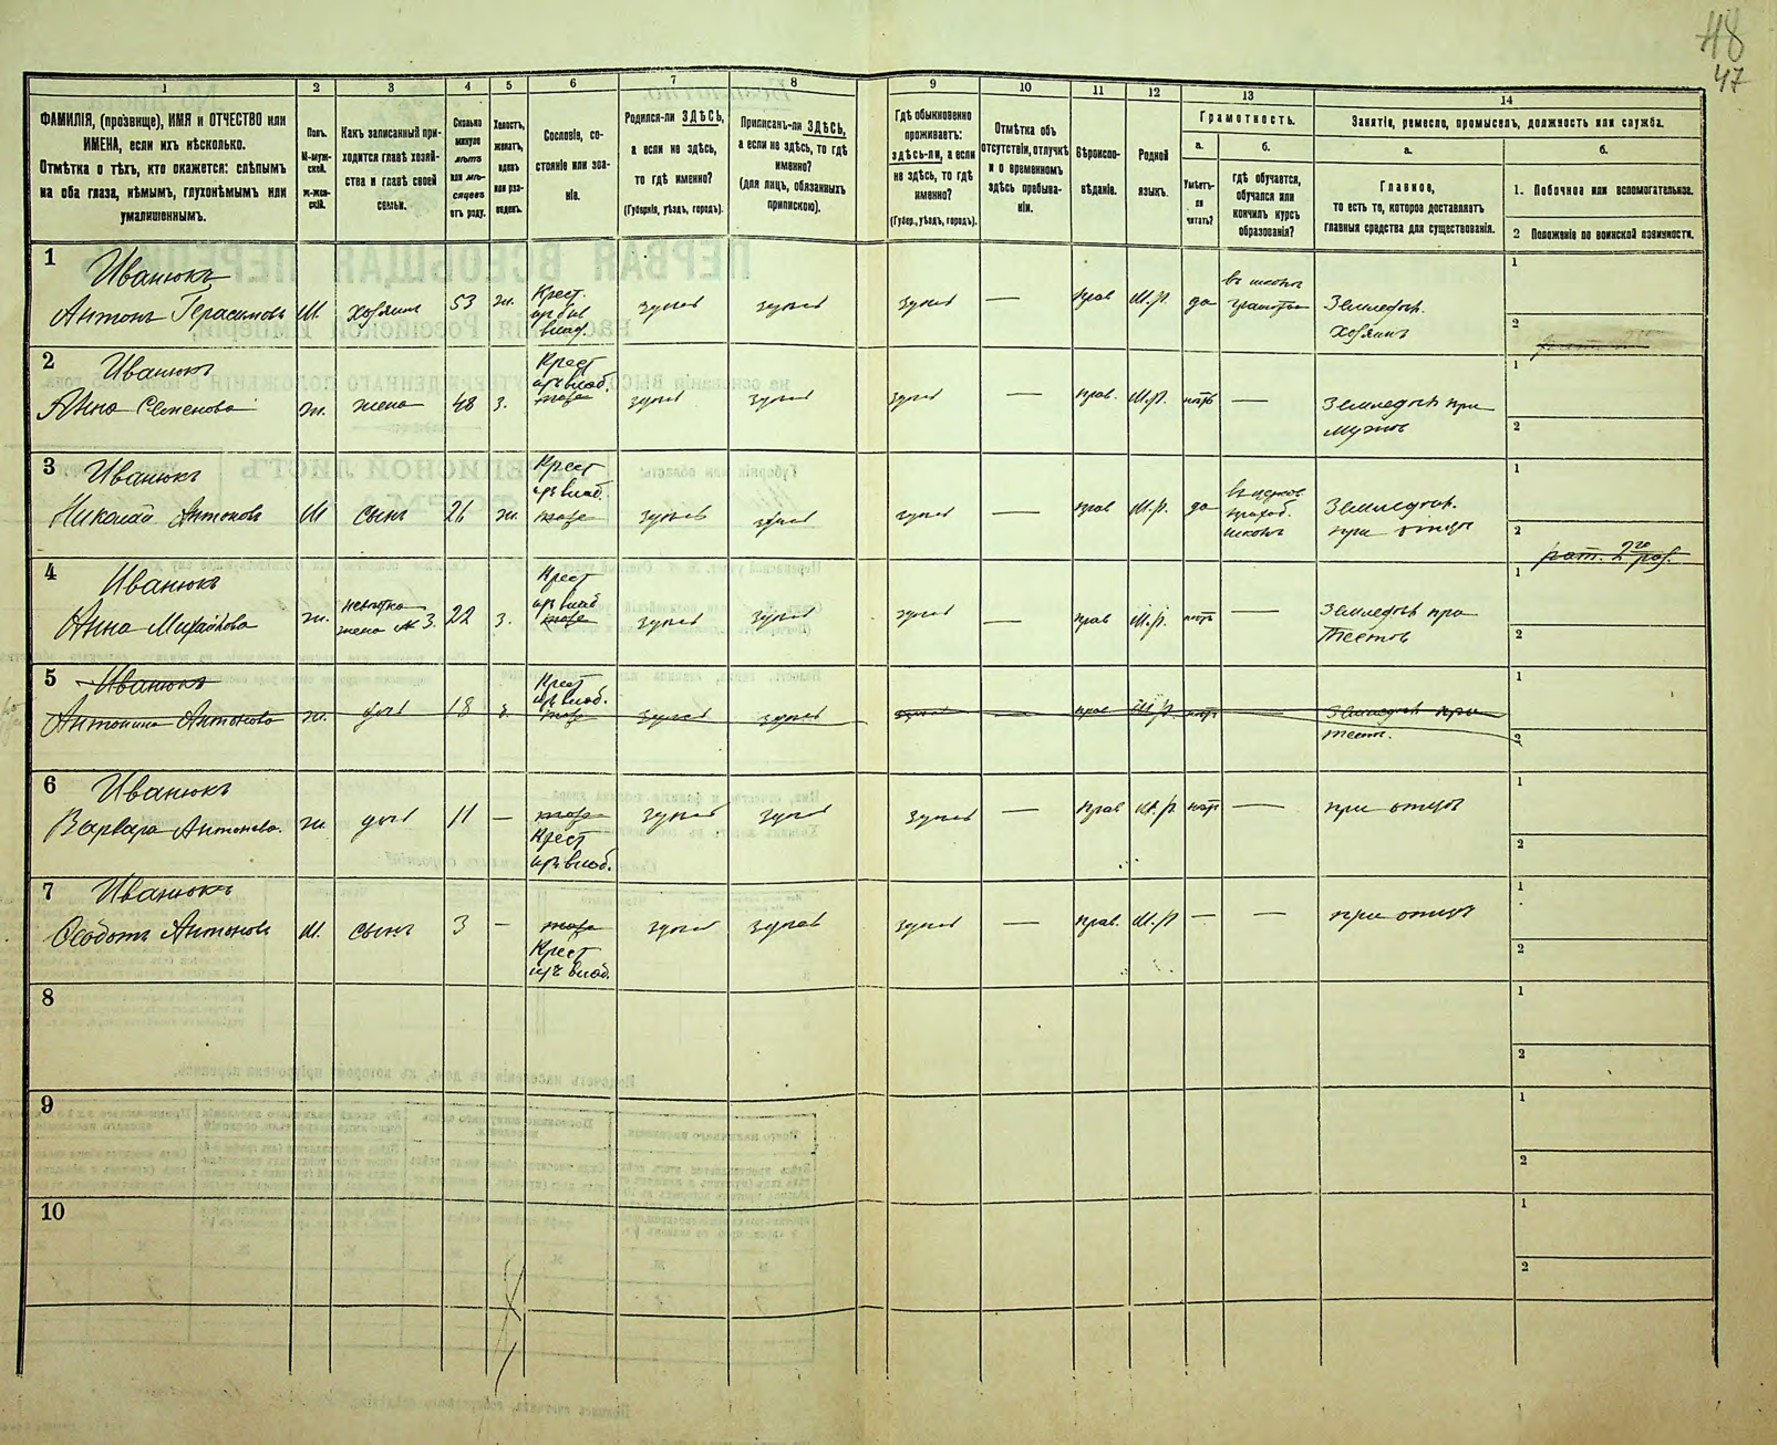 48
47
1
2
3
4
5
6
7
8
9
10
11
12
13
14
ФАМИЛІЯ, (прозвище), ИМЯ и ОТЧЕСТВО или
ИМЕНА, если ихъ нѣсколько.
Отмѣтка о тѣхъ, кто окажется: слѣпымъ
на оба глаза, нѣмымъ, глухонѣмымъ или
умалишеннымъ.
Полъ.
М-муж-
ской.
Ж-жен-
скій.
Какъ записанный при-
ходится главѣ хозяй-
ства и главѣ своей
семьи.
Сколько
минуло
лѣтъ
или мѣ-
сяцевъ
отъ роду.
Холостъ,
женатъ,
вдовъ
или раз-
веденъ.
Сословіе, со-
стояніе или зва-
ніе.
Родился-ли ЗДѢСЬ,
а если не здѣсь,
то гдѣ именно?
(Губернія, уѣздъ, городъ).
Приписанъ-ли ЗДѢСЬ,
а если не здѣсь, то гдѣ
именно?
(для лицъ, обязанныхъ
припискою).
Гдѣ обыкновенно
проживаетъ:
здѣсь-ли, а если
не здѣсь, то гдѣ
именно?
(Губер., уѣздъ, городъ).
Отмѣтка объ
отсутствіи, отлучкѣ
и о временномъ
здѣсь пребыва-
ніи.
Вѣроиспо-
вѣданіе.
Родной
языкъ.
Грамотность.
а.
Умѣетъ-
ли
читать?
б.
гдѣ обучается,
обучался или
кончилъ курсъ
образованія?
Занятіе, ремесло, промыселъ, должность или служба.
а.
Главное,
то есть то, которое доставляетъ
главныя средства для существованія.
б.
1. Побочное или вспомогательное.
2 Положеніе по воинской повинности.
1
Иванюкъ
Антонъ Герасимовъ
М
хозяинъ
53
ж.
Крест.
изъ б в
влад.
здѣсь
здѣсь
здѣсь
—
прав
М.р.
да
въ школѣ
грамоты
Земледѣл.
Хозяинъ
1
2
2
Иванюкъ
Анна Семенова
ж.
жена
48
з.
Крест
изъ влад.
тоже
здѣсь
здѣсь
здѣсь
—
прав.
М.р.
нѣтъ
—
Земледѣл при
мужѣ
1
2
3
Иванюкъ
Николай Антоновъ
М
сынъ
26
ж.
Крест
изъ влад.
тоже
здѣсь
здѣсь
здѣсь
—
прав
М.р.
да
въ церков.
приход.
школѣ
Земледѣл.
при отцѣ
1
2
рат. 2го раз.
4
Иванюкъ
Анна Михайлова
ж.
невѣстка
жена № 3.
22
з.
Крест
изъ влад
тоже
здѣсь
здѣсь
здѣсь
—
прав
М.р.
нѣтъ
—
Земледѣл при
тестѣ
1
2
5
Иванюкъ
Антонина Антонова
ж.
дочь
18
з.
Крест
изъ влад.
тоже
здѣсь
здѣсь
здѣсь
—
прав
М.р.
нѣтъ
—
Земледѣл при
тест.
1
2
6
Иванюкъ
Варвара Антонова.
ж.
дочь
11
—
тоже
Крест
изъ влад.
здѣсь
здѣсь
здѣсь
—
прав
М.р
нѣтъ
—
при отцѣ
1
2
7
Иванюкъ
Ѳеодотъ Антоновъ
М.
сынъ
3
—
тоже
Крест
изъ влад.
здѣсь
здѣсь
здѣсь
—
прав.
М.р
—
—
при отцѣ
1
2
8
1
2
9
1
2
10
1
2